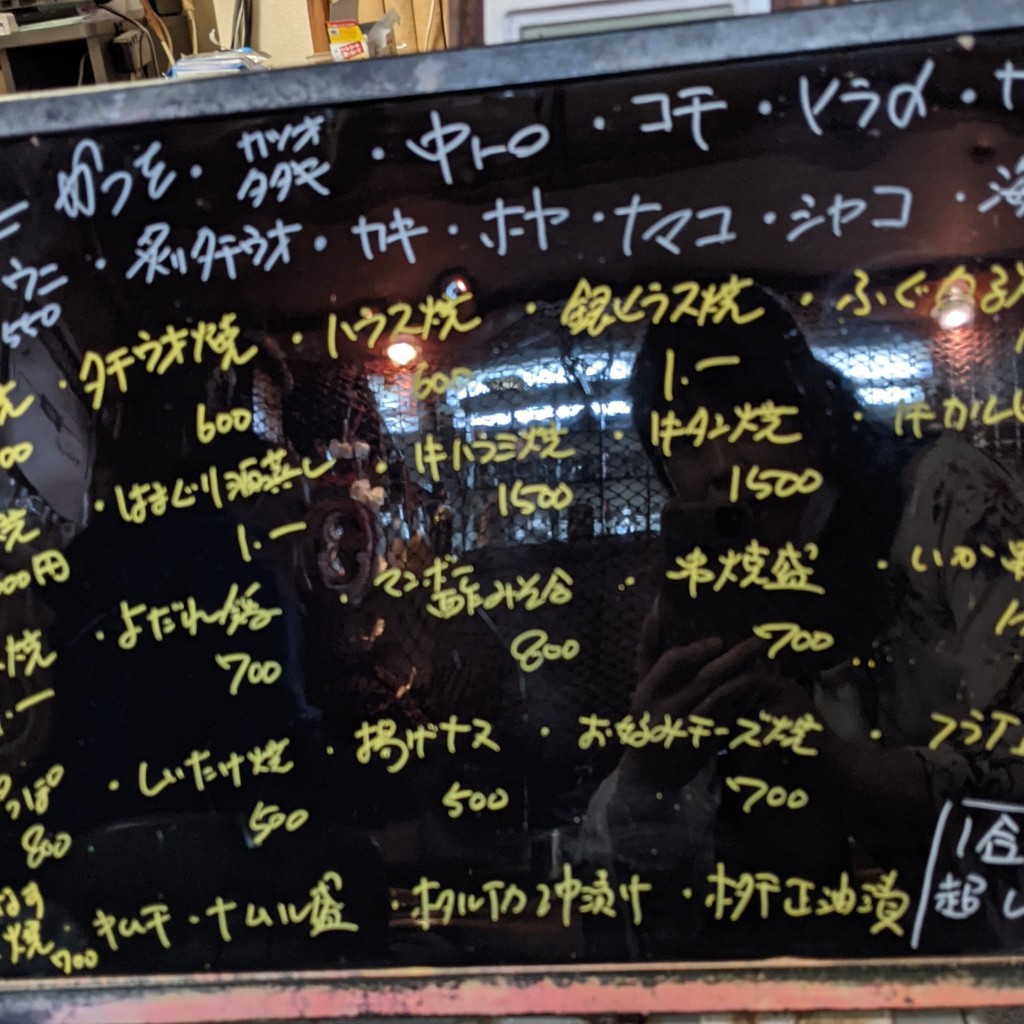 かつを・カツオ タタキ・中トロ・コチ・ヒラメ・
ウニ・炙りタチウオ・カキ・ホヤ・ナマコ・シャコ・海
550
・タチウオ焼・ハラス焼・銀ヒラス焼・ふぐ
00 600 600 1.ー
・はまぐり酒蒸し・牛ハラミ焼・牛タン焼・牛カル
00円 1.ー 1500 1500
焼・よだれ鶏・マンボー酢みそ合・串焼盛・いか
1.ー 700 800 700
っぽ・しいたけ焼・揚げナス・お好みチーズ焼・フライ
800 500 500 700
焼・キムチ・ナムル盛・ホタルイカ沖漬け・ホタテ正油漬
700
1合
超し